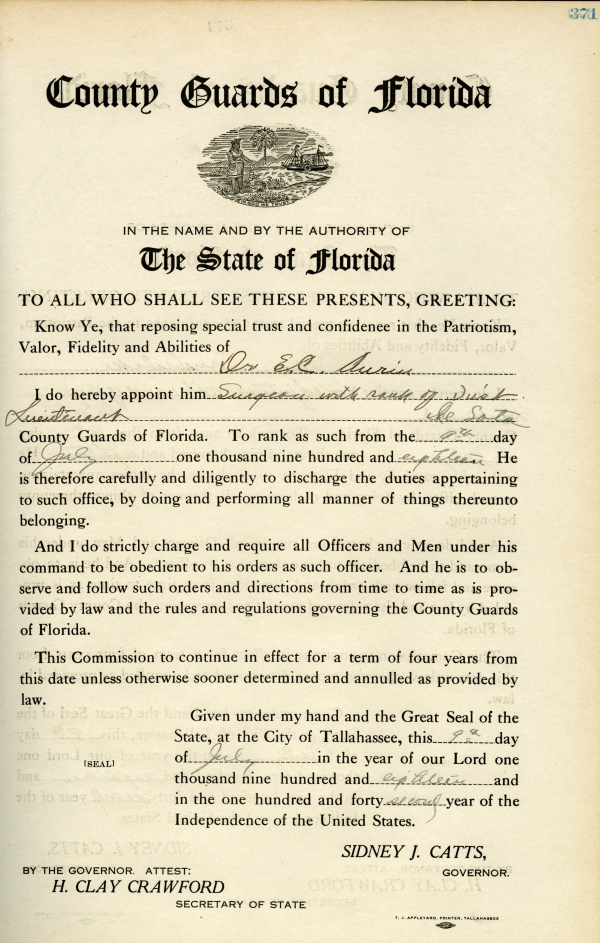 371
County Guards of Florida
IN GOD WE TRUST
IN THE NAME AND BY THE AUTHORITY OF
The State of Florida
TO ALL WHO SHALL SEE THESE PRESENTS, GREETING:
Know Ye, that reposing special trust and confidenee in the Patriotism,
Valor, Fidelity and Abilities of
Dr E.C. Aurin
I do hereby appoint him Surgeon with rank of First
Lieutenant De Soto
County Guards of Florida. To rank as such from the 9th day
of July one thousand nine hundred and eighteen He
is therefore carefully and diligently to discharge the duties appertaining
to such office, by doing and performing all manner of things thereunto
belonging.
And I do strictly charge and require all Officers and Men under his
command to be obedient to his orders as such officer. And he is to ob-
serve and follow such orders and directions from time to time as is pro-
vided by law and the rules and regulations governing the County Guards
of Florida.
This Commission to continue in effect for a term of four years from
this date unless otherwise sooner determined and annulled as provided by
law.
Given under my hand and the Great Seal of the
State, at the City of Tallahassee, this 9th day
[SEAL] of July in the year of our Lord one
thousand nine hundred and eighteen and
in the one hundred and forty second year of the
Independence of the United States.
SIDNEY J. CATTS,
BY THE GOVERNOR. ATTEST: GOVERNOR.
H. CLAY CRAWFORD
SECRETARY OF STATE
T. J. APPLEYARD, PRINTER, TALLAHASSEE